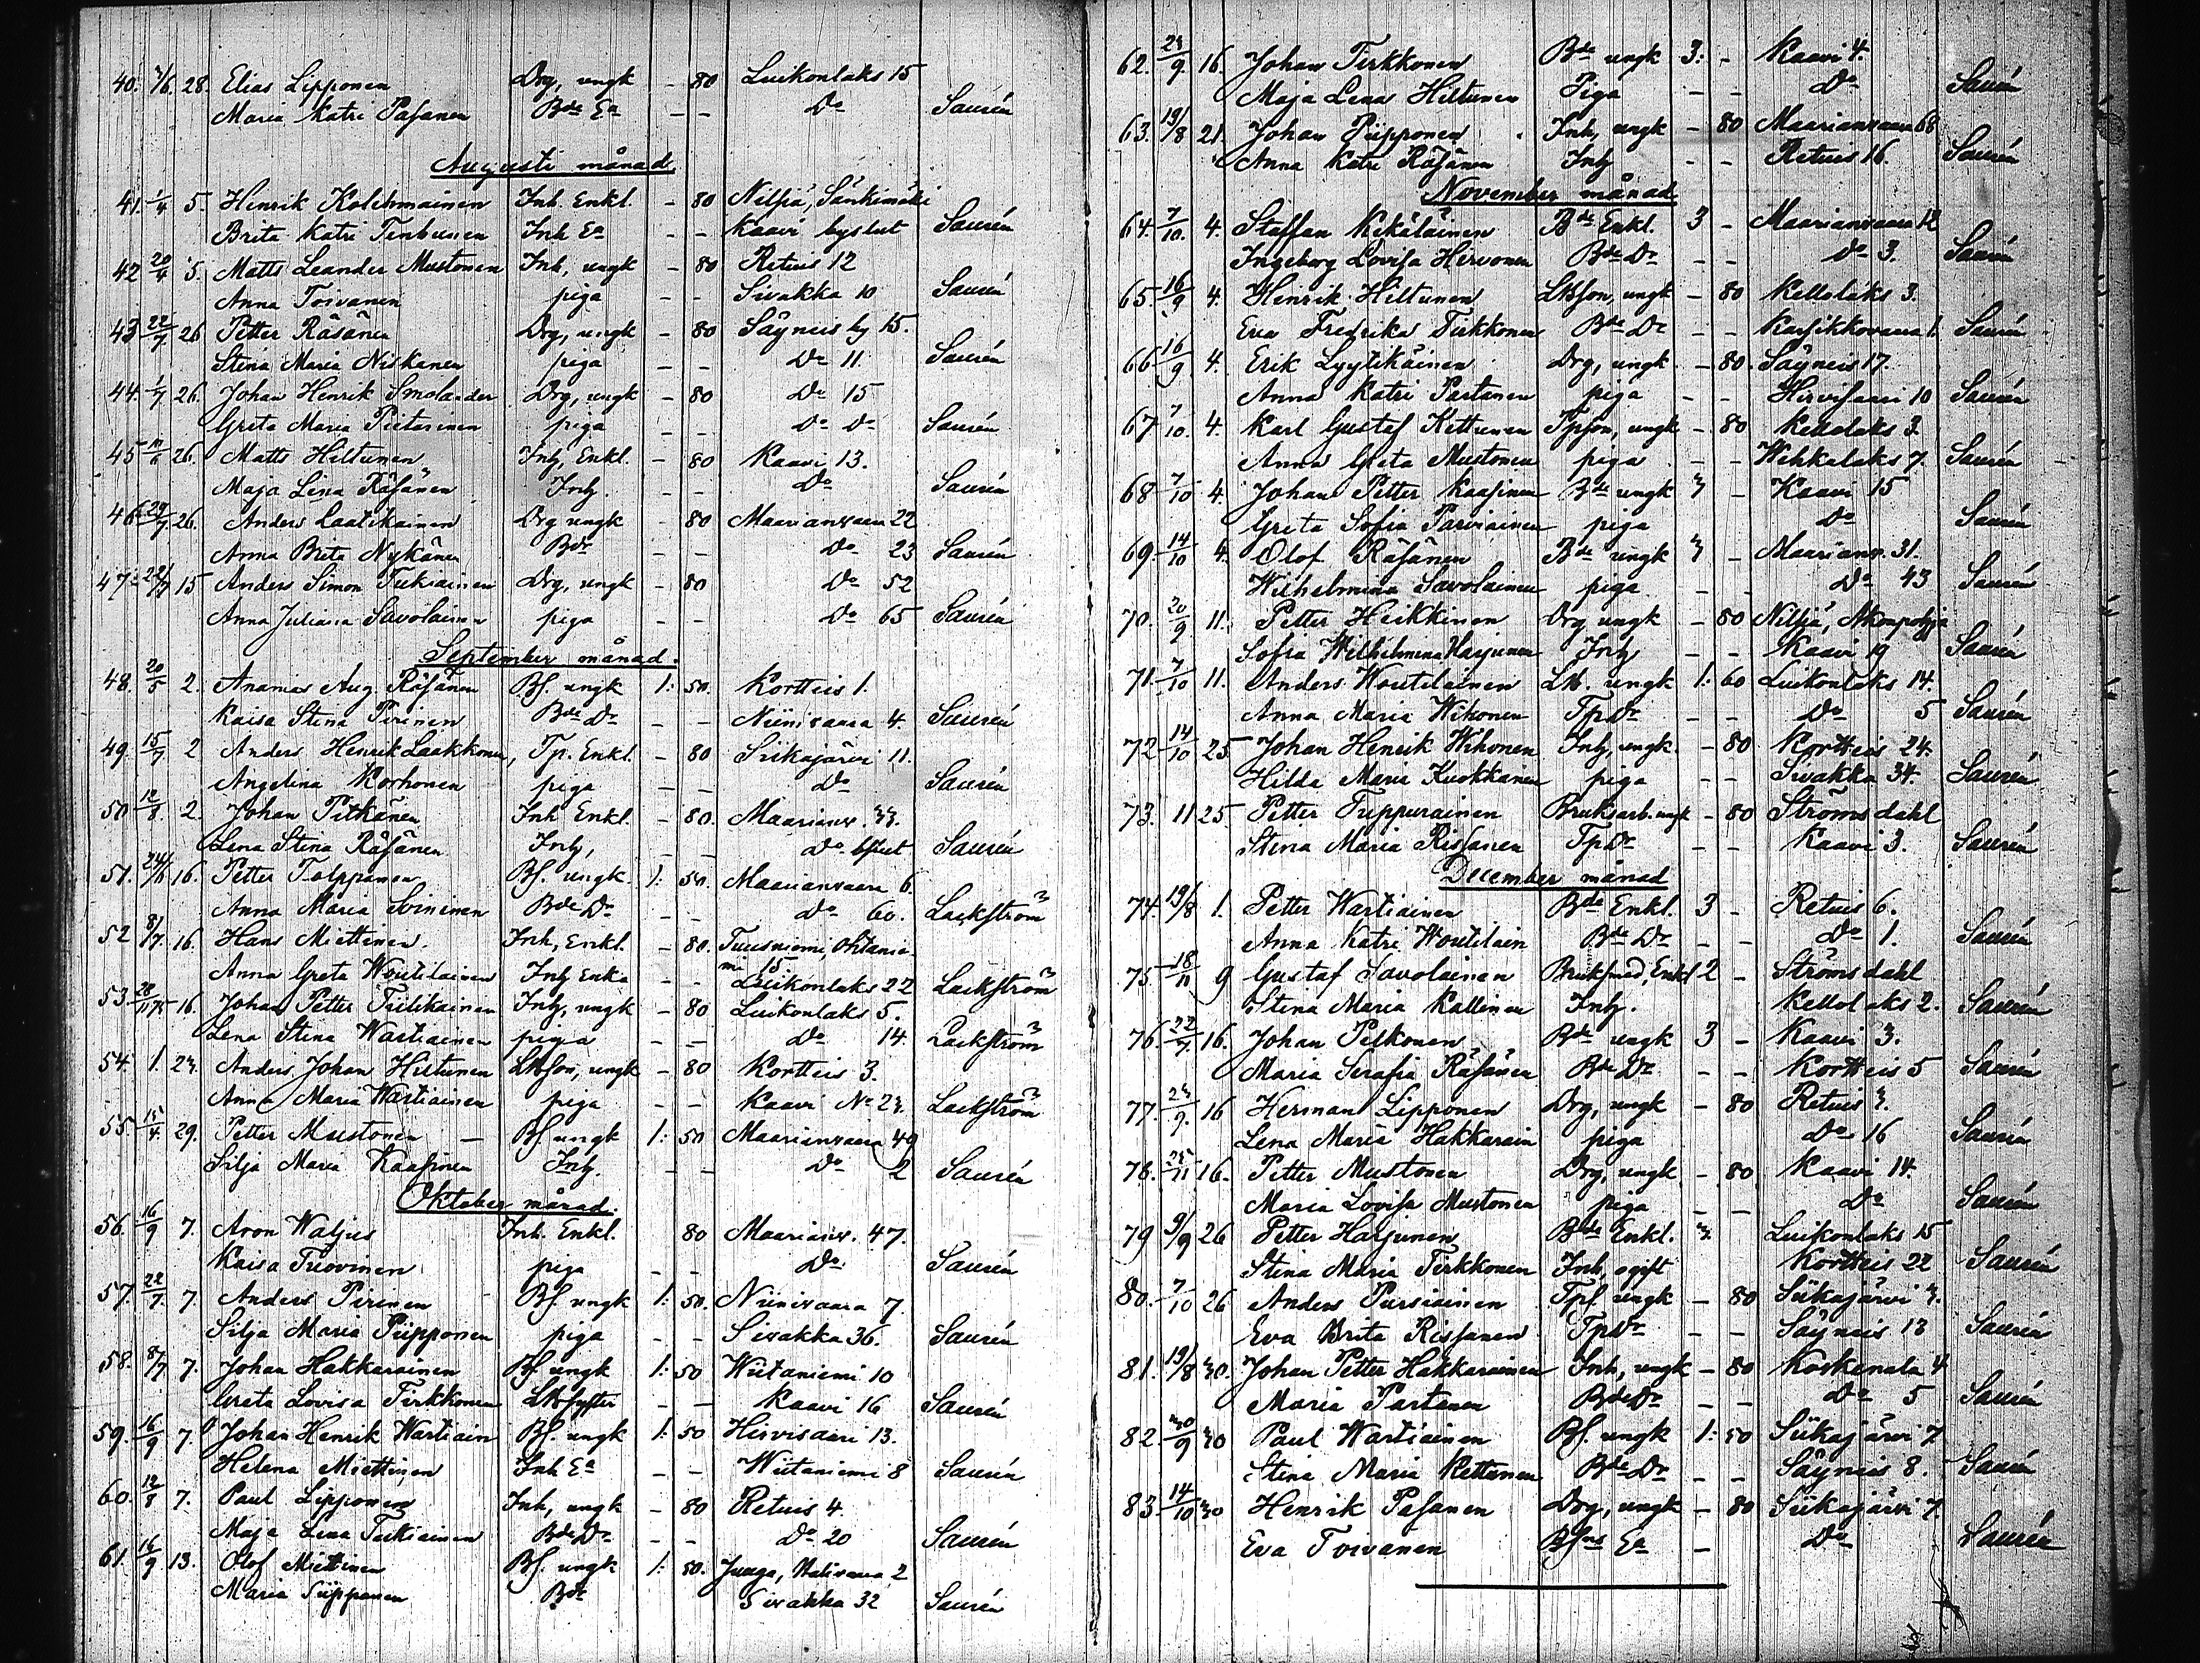 40. 7/6. 28. Elias Lipponen Drg, ungk - 80 Luikonlaks 15
Maria Katri Pasanen Bde Ea - - Do Saurén
Augusti månad.
41. 1/4 5. Henrik Kolehmainen Inh. Enkl. - 80 Nilsiä, Sänkimäki
Brita Katri Tenhunen Inh Ea - - Kaavi byslut Saurén
42 20/4 5. Matts Leander Mustonen Inh, ungk - 80 Retuis 12
Anna Toivanen piga - - Sivakka 10 Saurén
43 22/7 26 Petter Räsänen Drg, ungk - 80 Säyneis by 15.
Stina Maria Niskanen piga - - Do 11. Saurén
44. 1/7 26. Johan Henrik Smolander Drg, ungk - 80 Do 15
Greta Maria Pietarinen piga - - Do Do Saurén
45 26. Matts Hiltunen Inh, Enkl. - 80 Kaavi 13.
Maja Lena Räsänen Inh. - - Do Saurén
46. 29/7 26. Anders Laatikainen Drg ungk - 80 Maarianvaara 22
Anna Brita Nykänen Bdr - - Do 23 Saurén
47. 22/7 15 Anders Simon Tukiainen Drg, ungk - 80 Do 52
Anna Juliana Savolainen piga - - Do 65 Saurén
September månad.
48. 20/5 2. Ananias Aug. Räsänen Bs. ungk 1: 50. Kortteis 1.
Kaisa Stina Pirinen Bde Dr - - Niinivaara 4. Saurén
49. 15/7 2 Anders Henrik Laakkonen, Tp. Enkl. - 80 Siikajärvi 11.
Angelina Korhonen piga - - Do Saurén
50 12/8. 2. Johan Pitkänen Inh Enkl. - 80. Maarianv. 33.
Lena Stina Räsänen Inh, - - Do bslut Saurén
51. 24/6 16. Petter Tolppanen Bs. ungk. 1: 50. Maarianvaara 6.
Anna Maria Soininen Bde Dr - - Do 60. Lackström
52 8/7. 16. Hans Miettinen. Inh, Enkl. - 80. Tuusniemi, Ohtanie-
mi 15
Anna Greta Woutilainen Inh Enka - - Luikonlaks 22 Lackström
53. 16. Johan Petter Tiilikainen Inh, ungk - 80 Luikonlaks 5.
Lena Stina Wartiainen piga - - Do 14. Lackström
54. 1. 23. Anders Johan Hiltunen Lbson, ungk - 80 Kortteis 3.
Anna Maria Wartiainen piga - - Kaavi No 23. Lackström
55. 15/4. 29. Petter Mustonen - Bs ungk 1: 50 Maarianvaara 49
Silja Maria Kaasinen Inh. - - Do 2 Saurén
Oktober månad.
56. 16/9 7. Aron Waljus Inh. Enkl. 80 Maarianv. 47.
Kaisa Tuovinen piga - - Do Saurén
57. 22/7. 7. Anders Pirinen Bs ungk 1: 50. Niinivaara 7.
Silja Maria Piipponen piga - - Sivakka 36. Saurén
58. 8/7 7. Johan Hakkarainen Bs. ungk 1: 50 Wiitaniemi 10
Greta Lovisa Tirkkonen Lbsyster - - Kaavi 16 Saurén
59. 16/9 7. Johan Henrik Wartiain Bs. ungk 1: 50 Hirvisaari 13.
Helena Miettinen Inh Ea - - Wiitaniemi 8 Saurén
60. 12/8 7. Paul Lipponen Inh, ungk - 80 Retuis 4.
Maja Lena Tukiainen Bde Dr - - Do 20 Saurén
61. 16/9 13. Olof Miettinen Bs. ungk 1: 50. Juuga, Halivaara 2
Maria Piipponen Bde Sivakka 32 Saurén
62. 23/9. 16. Johan Tirkkonen Bde ungk 3: - Kaavi 4.
Maja Lena Hiltunen Piga - - Do Saurén
63. 19/8 21. Johan Piipponen Inh, ungk - 80 Maarianvaara 68
Anna Katri Räsänen Inh - - Retuis 16. Saurén
November månad
64. 7/10. 4. Staffan Kikäläinen Bde Enkl. 3 - Maarianvaara 12
Ingeborg Lovisa Hirvonen Bde Dr - - Do 3. Saurén
65. 16/9 4. Henrik Hiltunen Lbson, ungk - 80 Kellolaks 3.
Eva Fredrika Tirkkonen Bde Dr - - Karsikkovaara 1. Saurén
66 16/9 4. Erik Lyytikäinen Drg, ungk - 80. Säyneis 17.
Anna Katri Partanen piga - - Hirvisaari 10 Saurén
67 7/10. 4. Karl Gustaf Kettunen Tpson, ungk - 80 Kellolaks 3.
Anna Greta Mustonen piga - - Wehkalaks 7. Saurén
68 7/10 4. Johan Petter Kaasinen Bde ungk 3 - Kaavi 15
Greta Sofia Parviainen piga Do Saurén
69. 14/10 4. Olof Räsänen Bde ungk 3 - Maarianv. 31.
Wilhelmina Savolainen piga - - Do 43 Saurén
70. 20/9 11. Petter Heikkinen Drg ungk - 80 Nilsiä, Akonpohja
Sofia Wilhelmina Harjunen Inh - - Kaavi 19 Saurén
71. 7/10 11. Anders Woutilainen Lb. ungk 1: 60 Luikonlaks 14.
Anna Maria Wikonen TpDr - - Do 5 Saurén
72 14/10 25 Johan Henrik Wihonen Inh, ungk. - 80 Kortteis 24.
Hilda Maria Kuokkanen piga - - Sivakka 34. Saurén
73. 11 25. Petter Tuppurainen Bruksarb. ungk - 80 Strömsdahl
Stina Maria Rissanen TpDr - - Kaavi 3. Saurén
December månad
74. 19/8 1. Petter Wartiainen Bde Enkl. 3 - Retuis 6.
Anna Katri Woutilain Bde Dr - - Do 1. Saurén
75 18/11 9 Gustaf Savolainen Bruksmed, Enkl 2 - Strömsdahl
Stina Maria Kallinen Inh. Kellolaks 2. Saurén
76. 22/7. 16. Johan Pelkonen Bde ungk 3 - Kaavi 3.
Maria Serafia Räsänen Bde Dr - - Kortteis 5 Saurén
77. 23/9. 16 Herman Lipponen Drg, ungk - 80 Retuis 3.
Lena Maria Hakkarain piga Do 16 Saurén
78. 25/11 16. Petter Mustonen Drg, ungk - 80. Kaavi 14.
Maria Lovisa Mustonen piga - - Do Saurén
79 9/9 26 Petter Harjunen Bde Enkl. 3. Luikonlaks 15
Stina Maria Tirkkonen Inh, ogift Kortteis 22 Saurén
80. 7/10 26 Anders Pursiainen Tps. ungk - 80 Siikajärvi 3.
Eva Brita Rissanen TpDr - - Säyneis 13 Saurén
81. 19/8 30. Johan Petter Hakkarainen Inh, ungk - 80 Koskenala 4
Maria Partanen Bde Dr - - Do 5 Saurén
82. 30/9 30 Paul Wartiainen Bs. ungk 1: 50 Siikajärvi 7.
Stina Maria Kettunen Bde Dr - - Säyneis 8. Saurén
83. 14/10 30 Henrik Pasanen Drg, ungk - 80 Siikajärvi 7.
Eva Toivanen Bsns Ea - Do Saurén